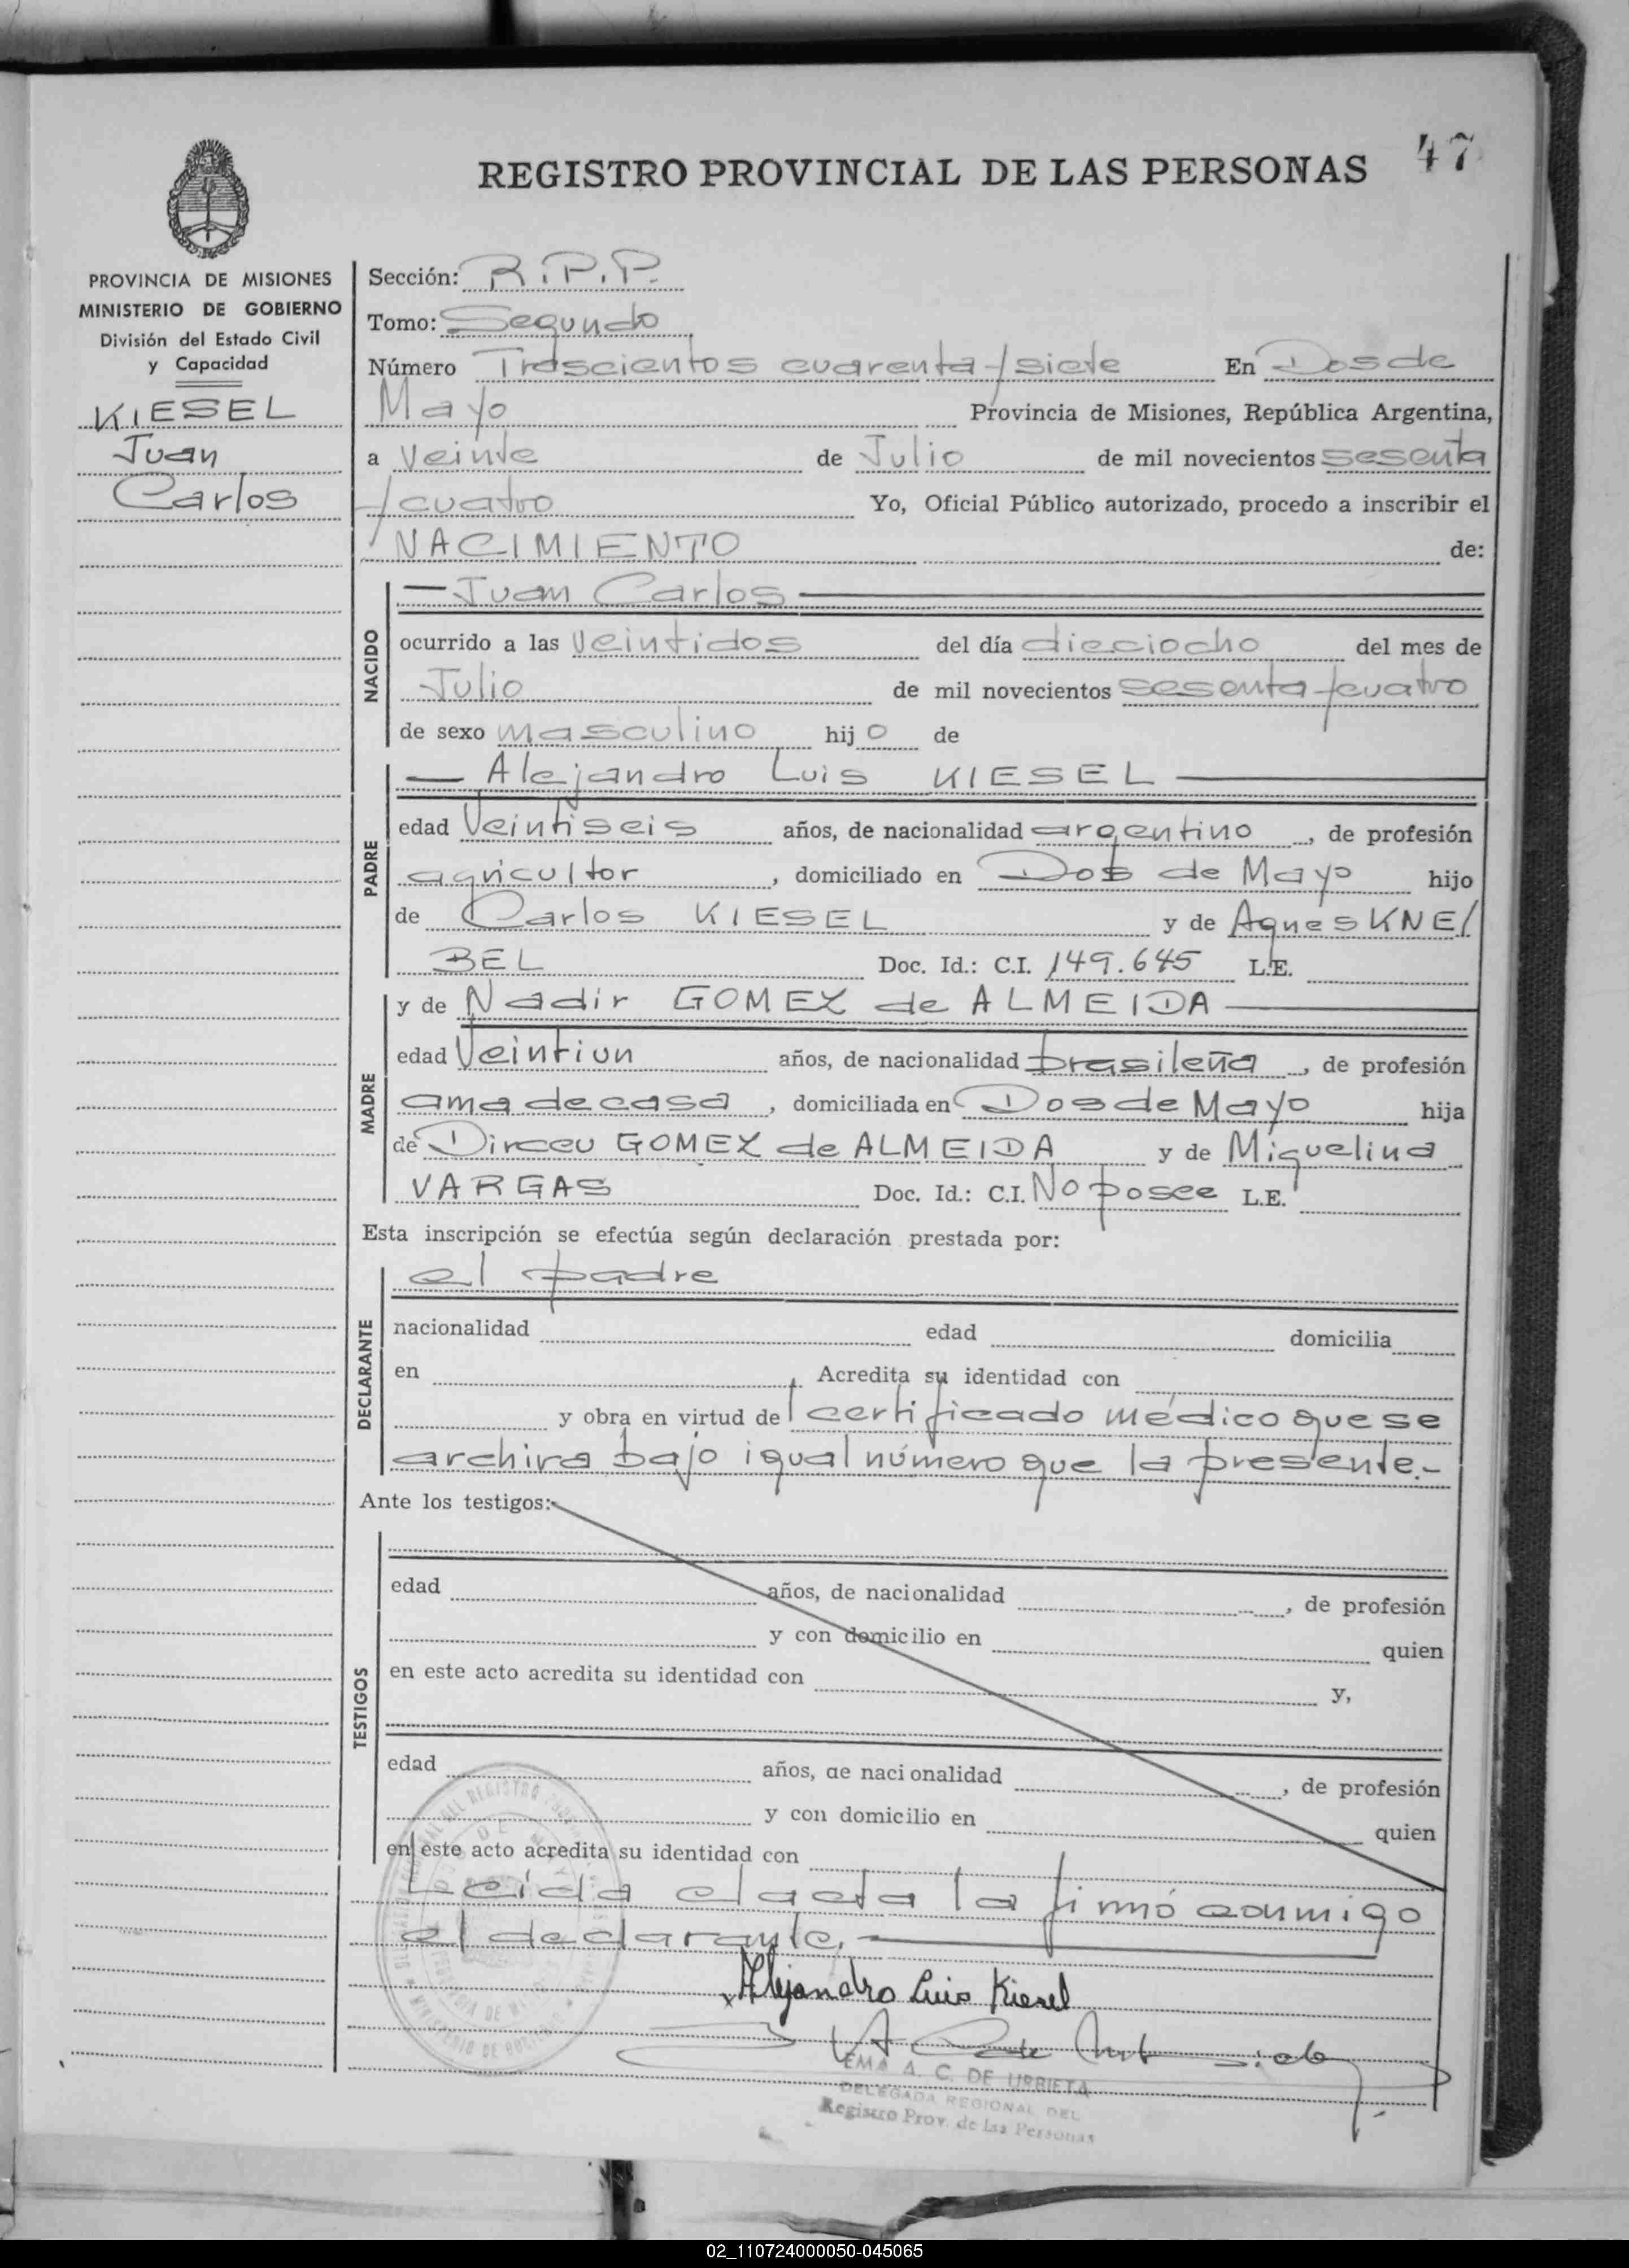 47
REGISTRO PROVINCIAL DE LAS PERSONAS
PROVINCIA DE MISIONES
MINISTERIO DE GOBIERNO
División del Estado Civil
y Capacidad
KIESEL
Juan
Carlos
Sección: R.P.P.
Tomo: Segundo
Número Trescientos cuarenta/siete En Dos de
Mayo Provincia de Misiones, República Argentina,
a Veinte de Julio de mil novecientos sesenta
/cuatro Yo, Oficial Público autorizado, procedo a inscribir el
NACIMIENTO de:
NACIDO
— Juan Carlos —
ocurrido a las Veintidos del día dieciocho del mes de
Julio de mil novecientos sesenta/cuatro
de sexo masculino hijo de
PADRE
— Alejandro Luis KIESEL —
edad Veintiseis años, de nacionalidad argentino, de profesión
agricultor, domiciliado en Dos de Mayo hijo
de Carlos KIESEL y de Agnes KNE/
BEL Doc. Id.: C.I. 149.645 L.E.
MADRE
y de Nadir GOMEZ de ALMEIDA —
edad Veintiun años, de nacionalidad brasileña, de profesión
ama de casa, domiciliada en Dos de Mayo hija
de Dirceu GOMEZ de ALMEIDA y de Miguelina
VARGAS Doc. Id.: C.I. No posee L.E.
Esta inscripción se efectúa según declaración prestada por:
DECLARANTE
el padre
nacionalidad edad domicilia
en Acredita su identidad con
y obra en virtud del certificado médico que se
archiva bajo igual número que la presente.-
Ante los testigos:
TESTIGOS
edad años, de nacionalidad , de profesión
y con domicilio en quien
en este acto acredita su identidad con y,
edad años, de nacionalidad , de profesión
y con domicilio en quien
en este acto acredita su identidad con
Leída el acta la firmó conmigo
el declarante.—
x Alejandro Luis Kiesel
EMA A. C. DE URRIETA
DELEGADA REGIONAL DEL
Registro Prov. de las Personas
02_110724000050-045065